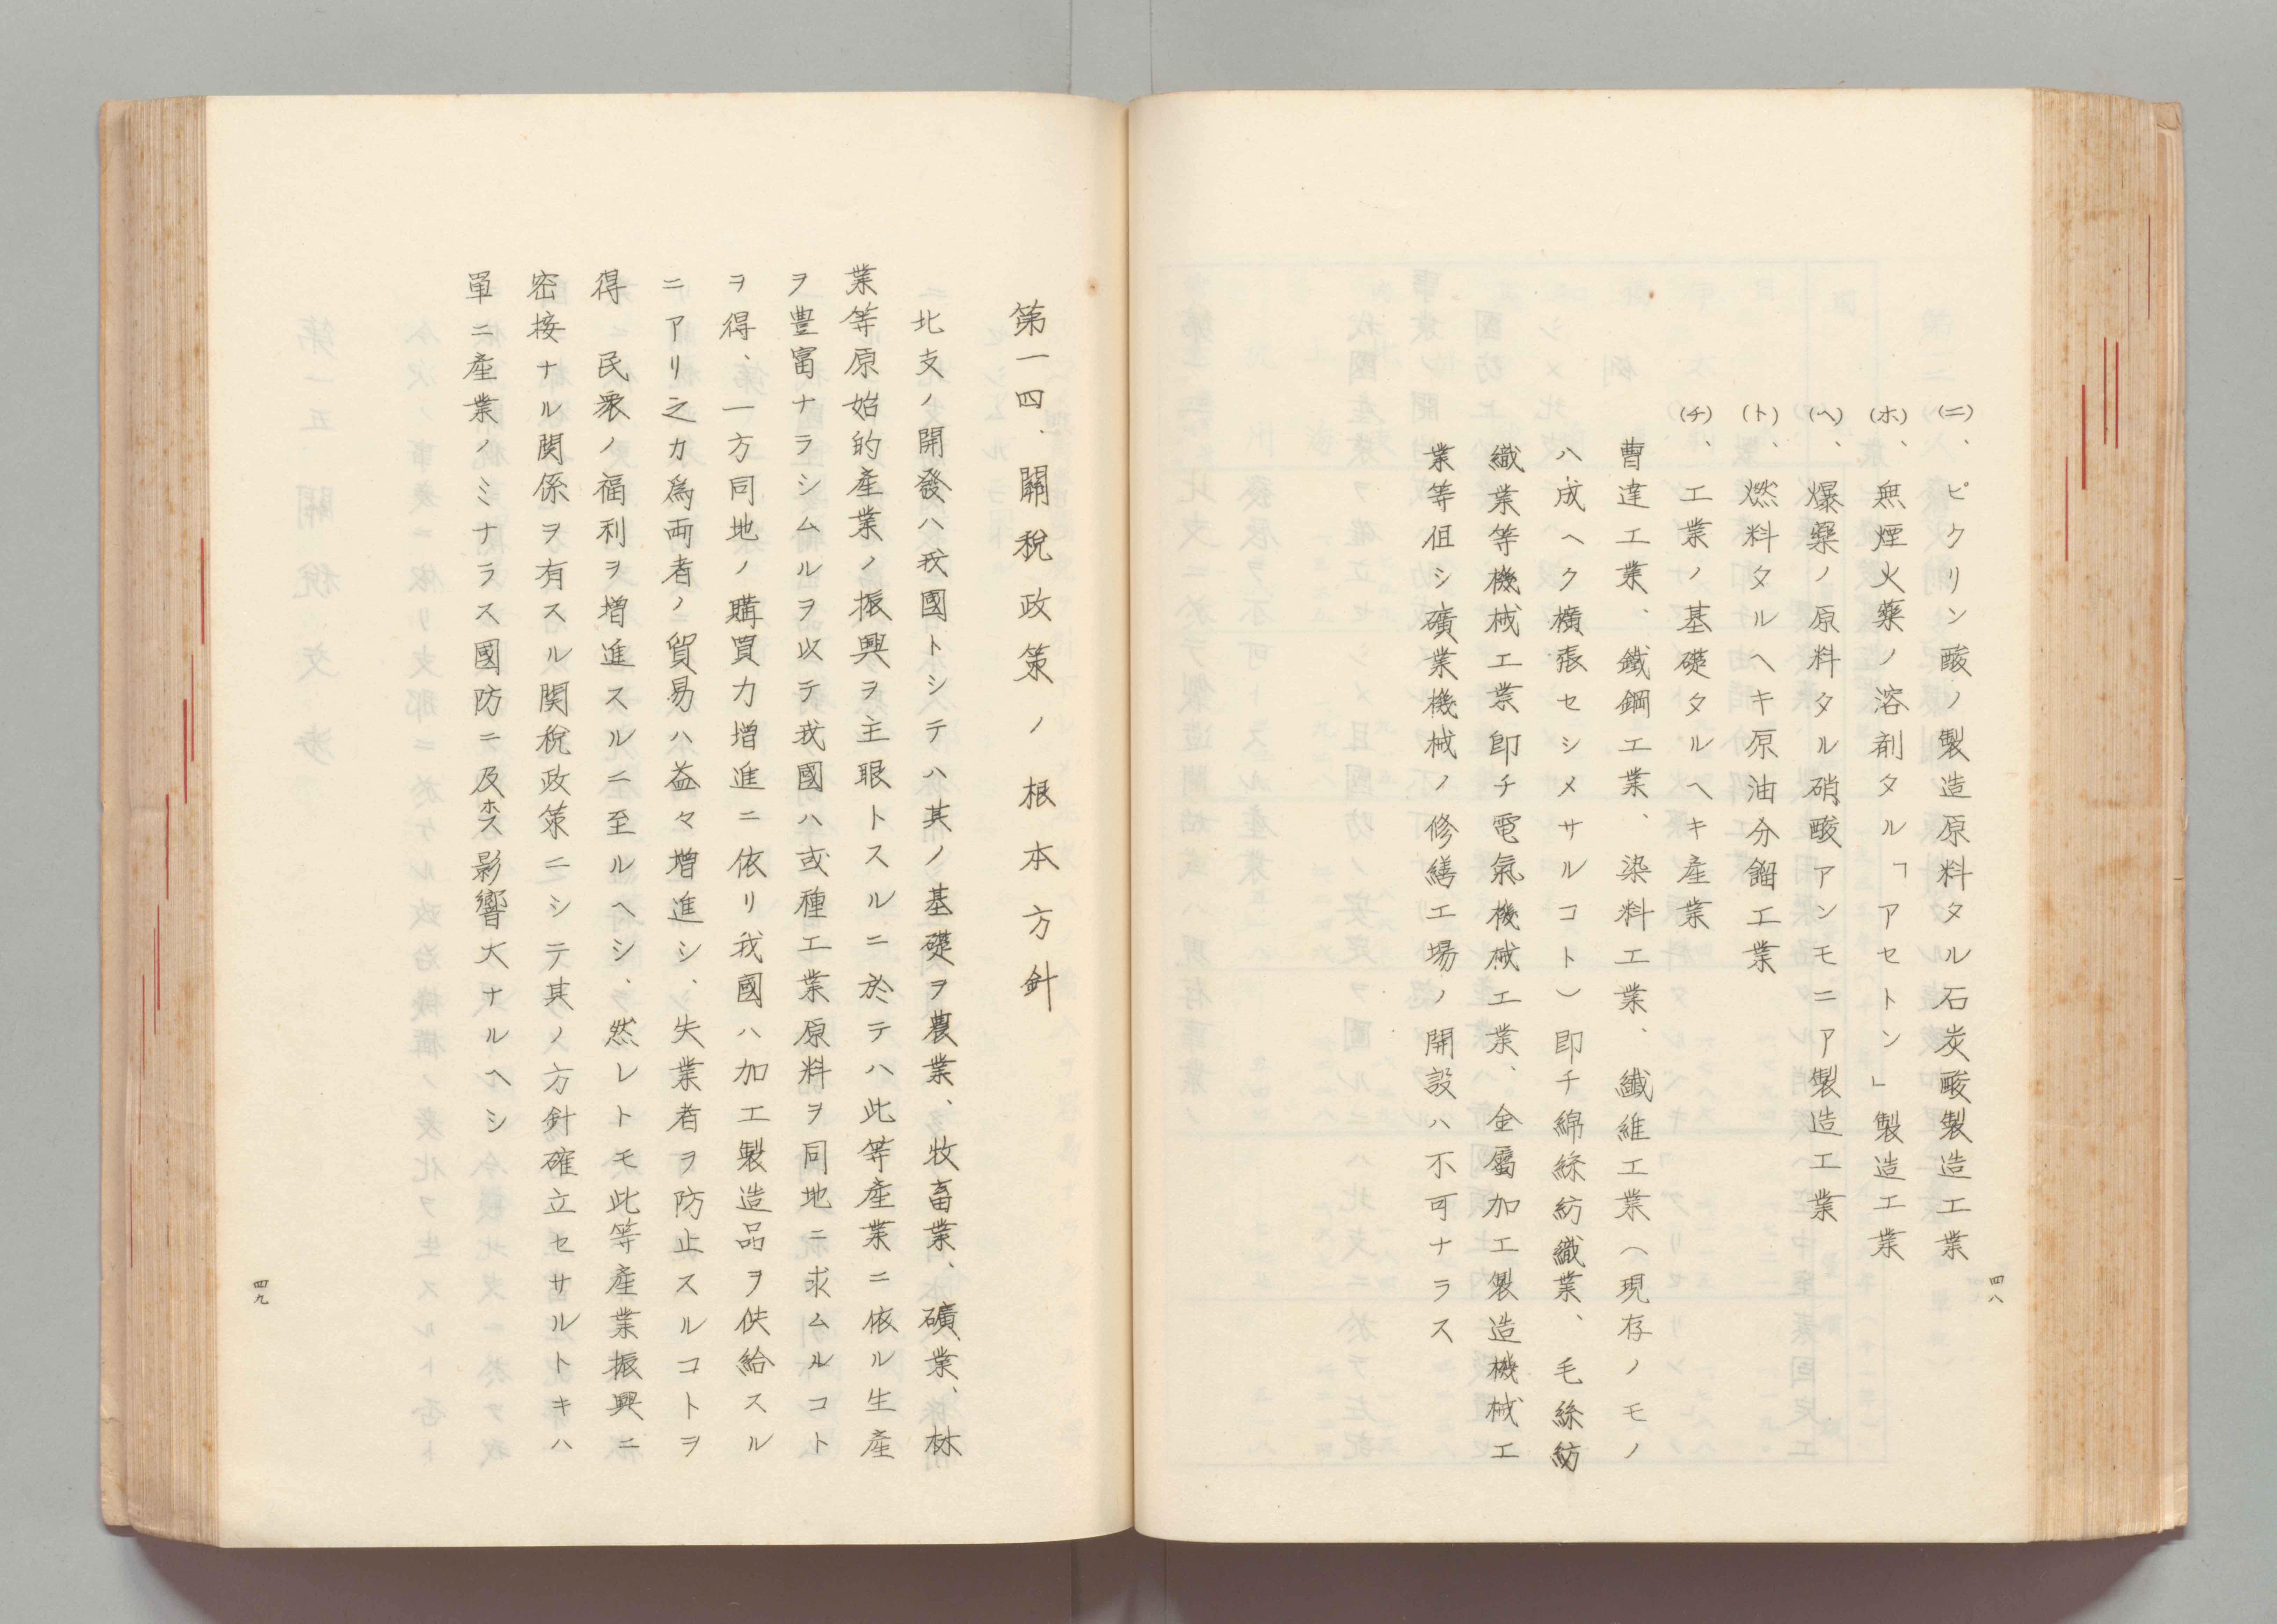 (ニ)、ピクリン酸ノ製造原料タル石炭酸製造工業
(ホ)、無煙火藥ノ溶剤タル「アセトン」製造工業
(ヘ)、爆藥ノ原料タル硝酸アンモニア製造工業
(ト)、燃料タルヘキ原油分餾工業
(チ)、工業ノ基礎タルヘキ産業
曹達工業、鐵鋼工業、染料工業、纎維工業(現存ノモノ
ハ成ヘク擴張セシメサルコト)即チ綿絲紡織業、毛絲紡
織業等機械工業即チ電氣機械工業、金屬加工製造機械工
業等伹シ礦業機械ノ修繕工場ノ開設ハ不可ナラス
四八
第一四、關稅政策ノ根本方針
北支ノ開發ハ我國トシテハ其ノ基礎ヲ農業、牧畜業、礦業、林
業等原始的産業ノ振興ヲ主眼トスルニ於テハ此等産業ニ依ル生産
ヲ豊富ナラシムルヲ以テ我國ハ或種工業原料ヲ同地ニ求ムルコト
ヲ得、一方同地ノ購買力増進ニ依リ我國ハ加工製造品ヲ供給スル
ニアリ之カ爲両者ノ貿易ハ益々増進シ、失業者ヲ防止スルコトヲ
得 民衆ノ福利ヲ増進スルニ至ルヘシ、然レトモ此等産業振興ニ
密接ナル関係ヲ有スル関稅政策ニシテ其ノ方針確立セサルトキハ
單ニ産業ノミナラス國防ニ及ホス影響大ナルヘシ
四九